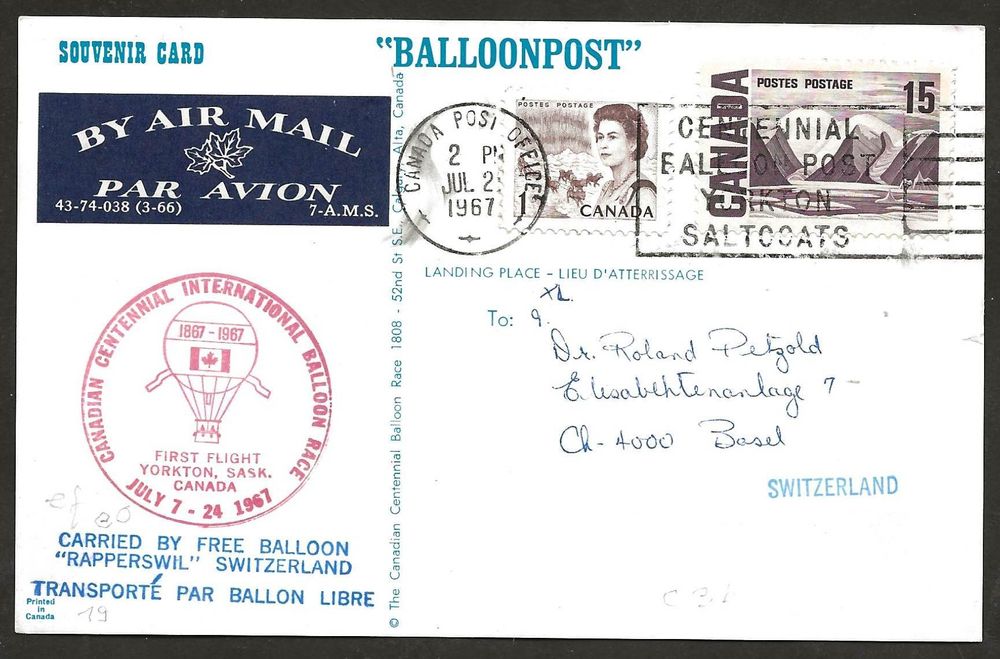 SOUVENIR CARD
"BALLOONPOST"
BY AIR MAIL
PAR AVION
43-74-038 (3-66)
7-A.M.S.
CANADA POST OFFICE
2 PM
JUL 2
1967
POSTES POSTAGE
1
CANADA
POSTES POSTAGE
15
CANADA
CENTENNIAL
BALLOON POST
YORKTON
SALTCOATS
LANDING PLACE – LIEU D'ATTERRISSAGE
To:
Dr. Roland Petzold
Elisabethenanlage 7
Ch-4000 Basel
SWITZERLAND
CANADIAN CENTENNIAL INTERNATIONAL BALLOON RACE
1867-1967
FIRST FLIGHT
YORKTON, SASK.
CANADA
JULY 7 - 24 1967
CARRIED BY FREE BALLOON
"RAPPERSWIL" SWITZERLAND
TRANSPORTÉ PAR BALLON LIBRE
Printed
in
Canada
19
© The Canadian Centennial Balloon Race 1808 - 52nd St S.E. Alta, Canada